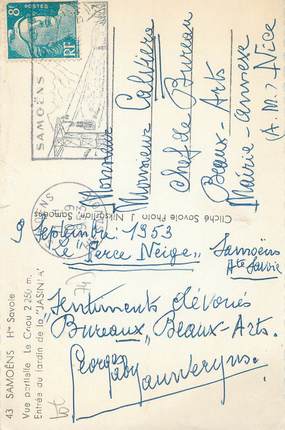 43 SAMOËNS Hte Savoie
Vue partielle Le Criou 2 250 m.
Entrée du Jardin de la "JAŸSINIA"
9 Septembre 1953
"Le Perce Neige" Samoëns
Hte Savoie
Sentiments dévoués
Bureaux "Beaux-Arts.
Georges
Gaby
Cliché Savoie Photo J. Nikoghlian, Samoëns
SAMOËNS
8F
RF
Monsieur
Monsieur
Chef de Bureau
Beaux-Arts
Mairie-annexe
(A.M.) Nice